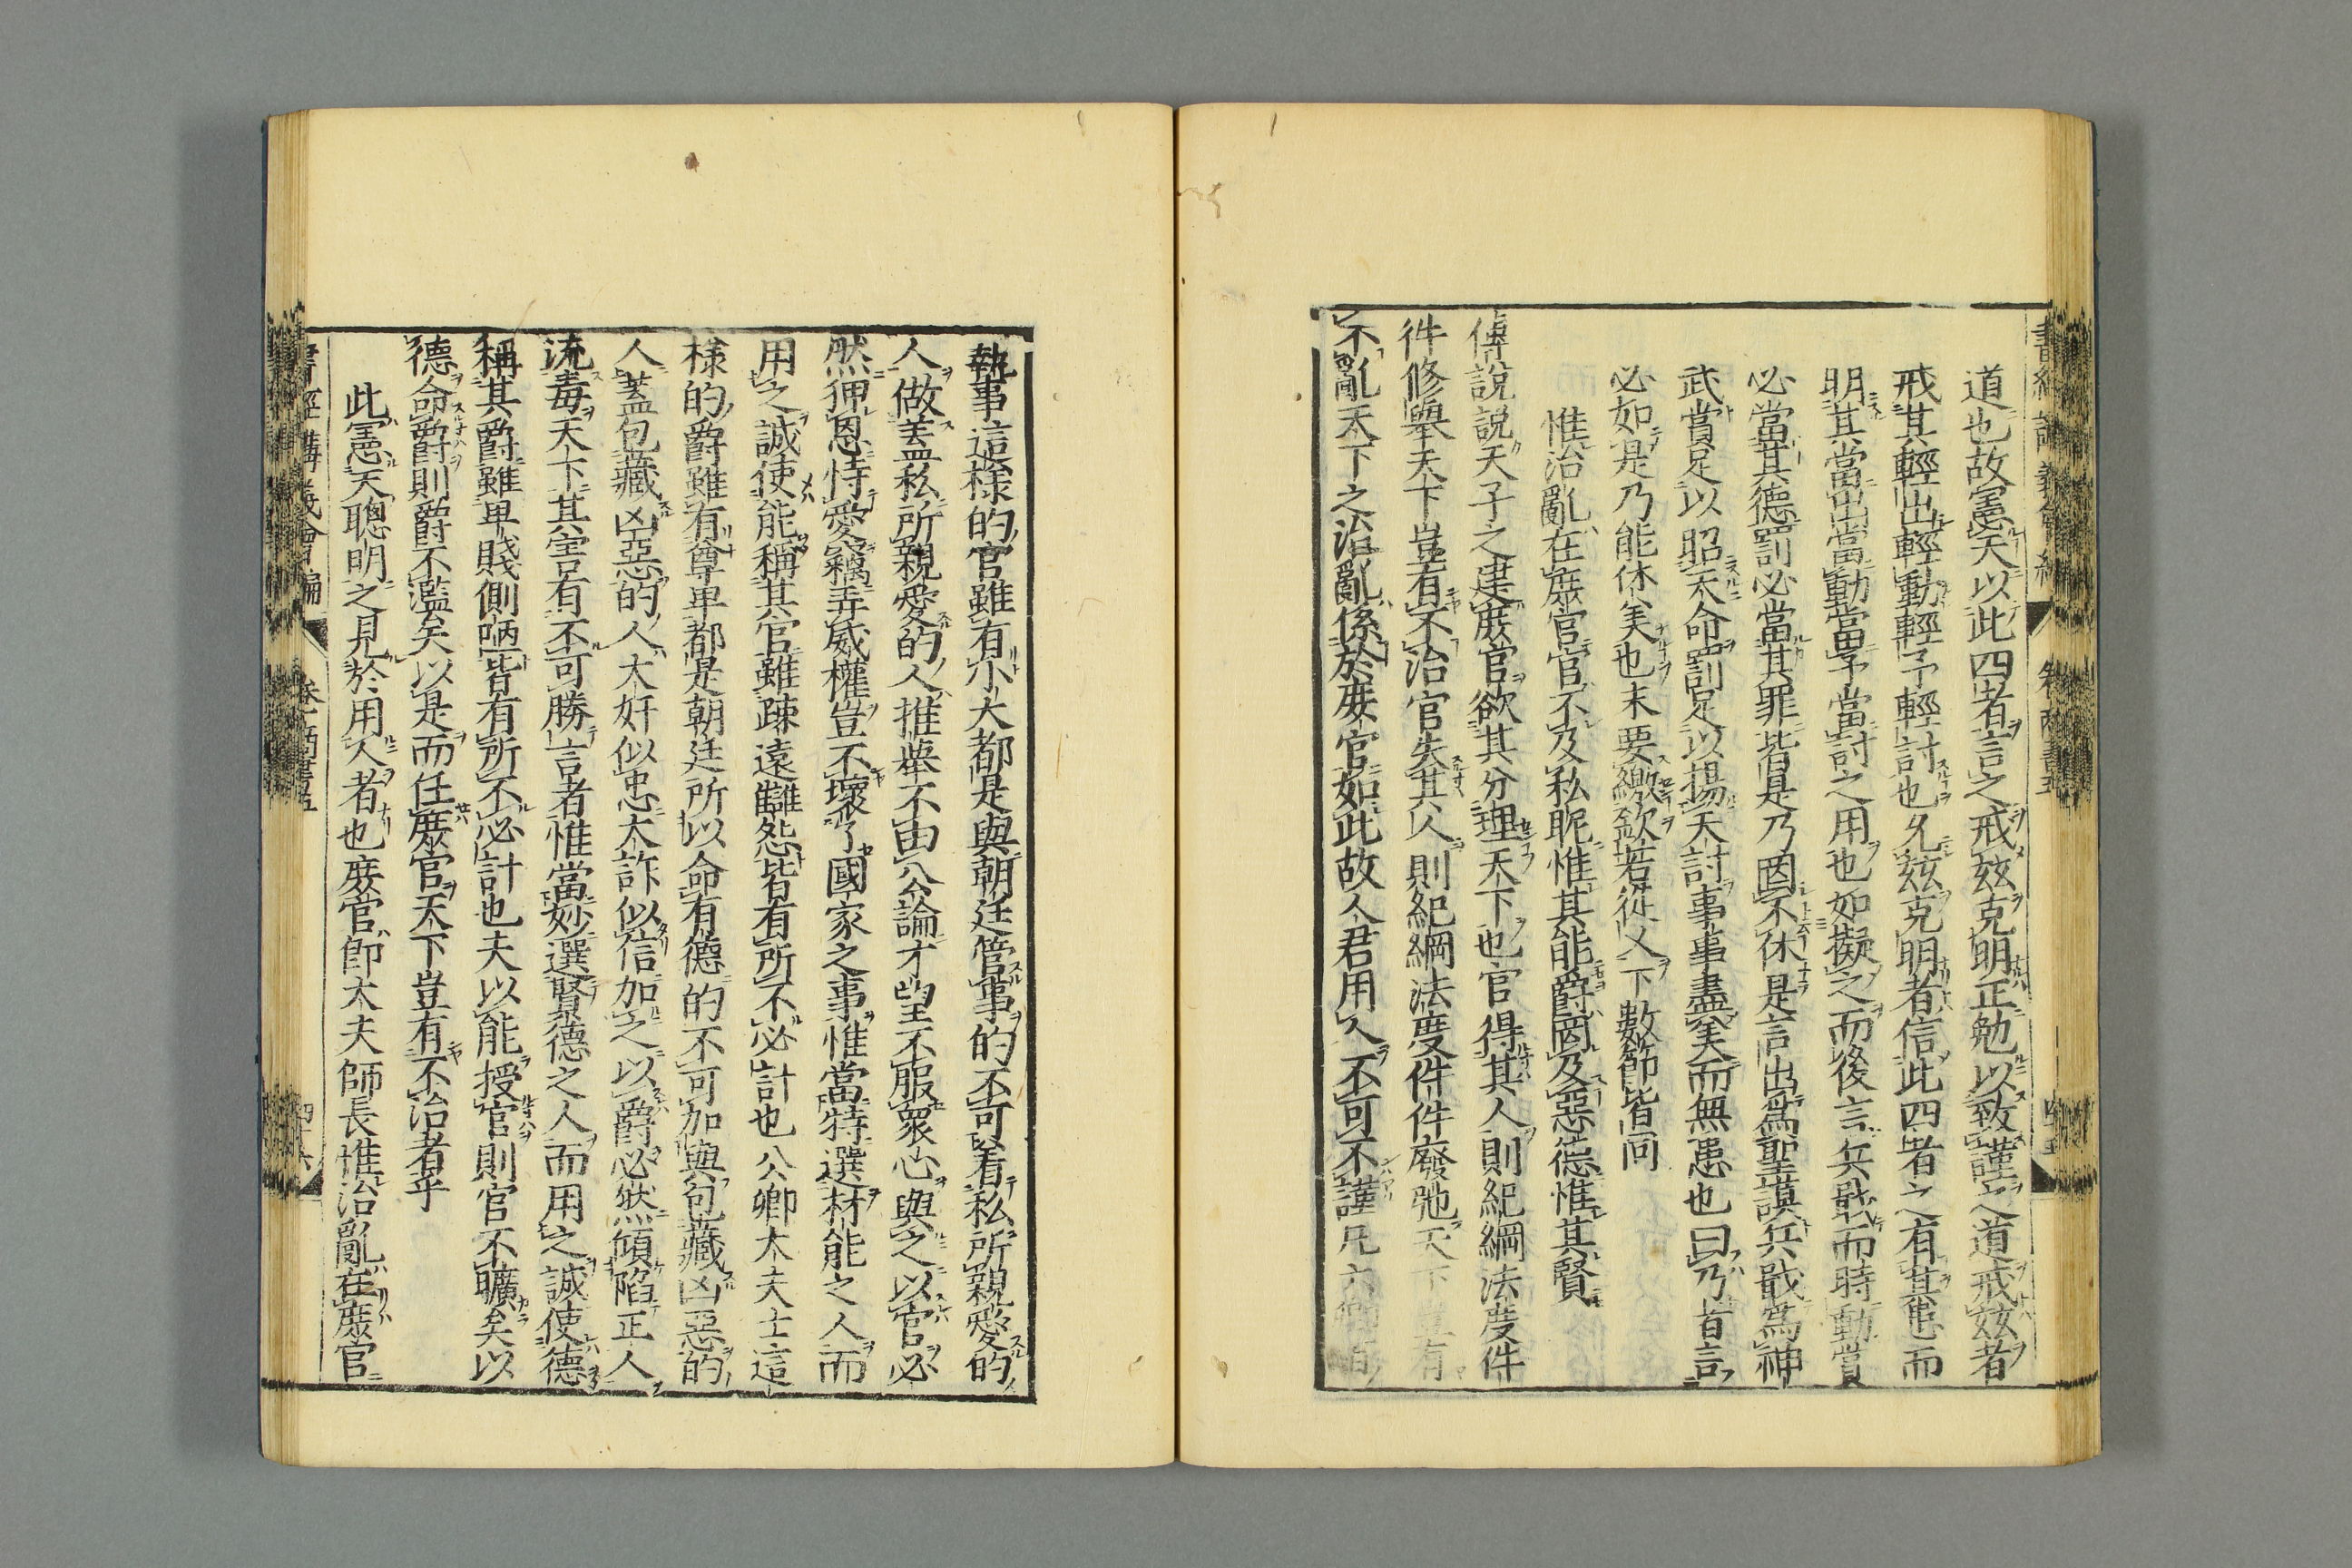 道也故憲天以此四者言之戒玆克明正勉以致謹之道戒玆者
戒其輕出輕動輕予輕討也允玆克明者信此四者之有其患而
明其當出當動當予當討之用也如擬之而後言兵戢而時動賞
必當其德罰必當其罪皆是乃罔不休是言出爲聖謨兵戢爲神
武賞足以昭天命罰足以揚天討事事盡美而無患也曰乃者言
必如是乃能休美也末要繳欽若從乂下數節皆同
惟治亂在庶官官不及私昵惟其能爵罔及惡德惟其賢
傅說說天子之建庶官欲其分理天下也官得其人則紀綱法度件
件修舉天下豈有不治官失其人則紀綱法度件件廢弛天下豈有
不亂天下之治亂係於庶官如此故人君用人不可不謹凡六卿百
執事這樣的官雖有小大都是與朝廷管事的不可着私所親愛的
人做盖私所親愛的人推舉不由公論才望不服衆心與之以官必
然狎恩恃愛竊弄威權豈不壞了國家之事惟當特選材能之人而
用之誠使能稱其官雖疎遠讎怨皆有所不必計也公卿大夫士這
樣的爵雖有尊卑都是朝廷所以命有德的不可加與包藏凶惡的
人蓋包藏凶惡的人大奸似忠大詐似信加之以爵必然傾陷正人
流毒天下其害有不可勝言者惟當妙選賢德之人而用之誠使德
稱其爵雖卑賤側陋皆有所不必計也夫以能授官則官不曠矣以
德命爵則爵不濫矣以是而任庶官天下豈有不治者乎
此憲天聰明之見於用人者也庶官卽大夫師長惟治亂在庶官
書經講義會編
卷
四十六